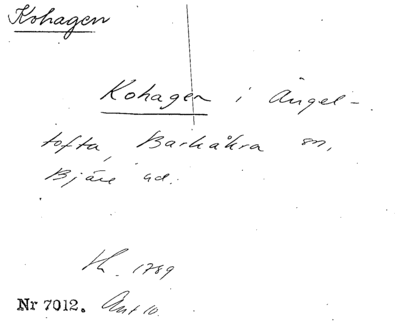 Kohagen
Kohagen i Ängel-
tofta, Barkåkra sn,
Bjäre hd.
1789
Nr 7012. Ant 10.